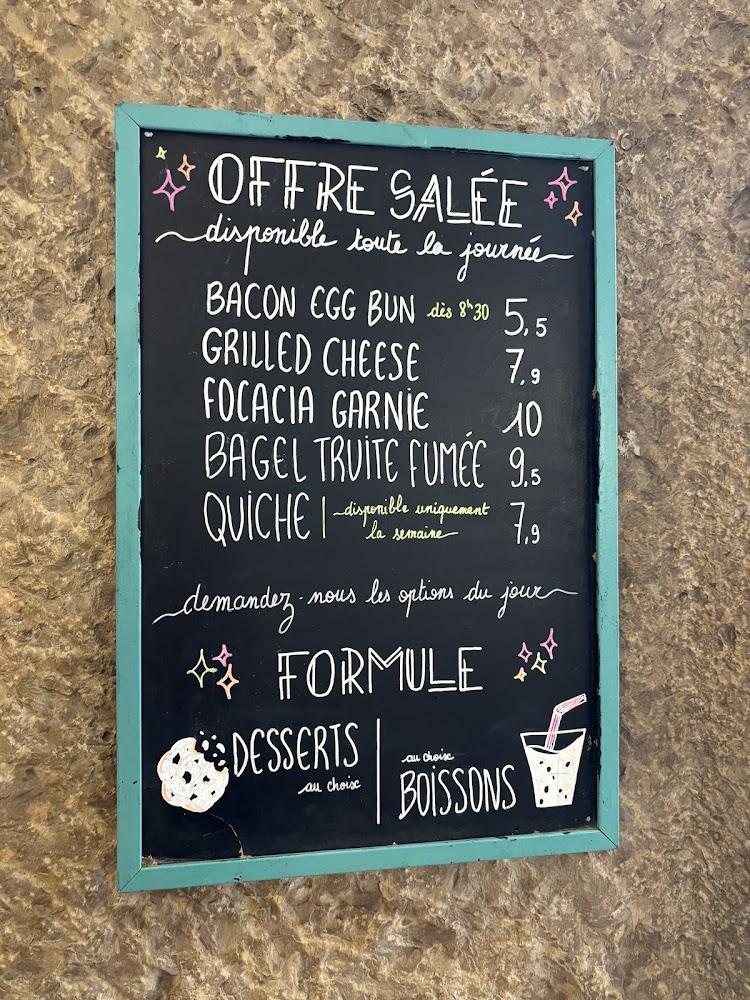 OFFRE SALÉE
disponible toute la journée
BACON EGG BUN dès 8h30 5,5
GRILLED CHEESE 7,9
FOCACIA GARNIE 10
BAGEL TRUITE FUMÉE 9,5
QUICHE disponible uniquement la semaine 7,9
demandez-nous les options du jour
FORMULE
DESSERTS
au choix
au choix
BOISSONS